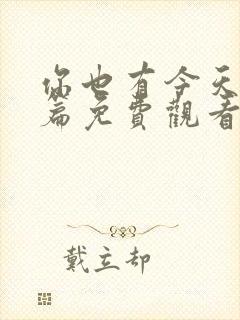 你也有今天
篇免費觀看
戴立却